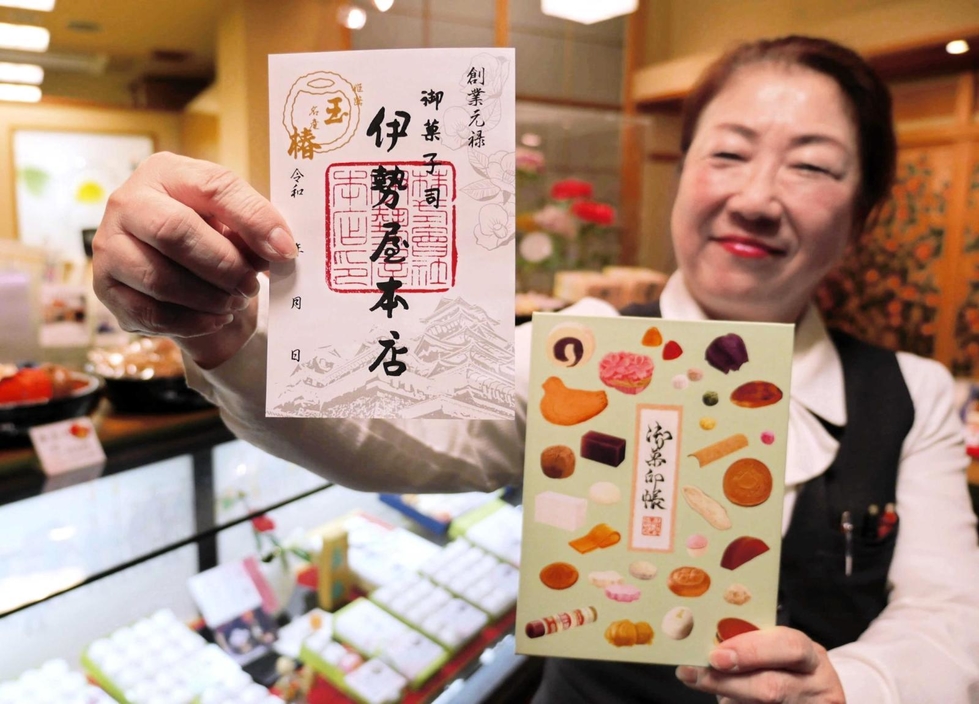 創業元禄
御菓子司
伊勢屋本店
姫路
名産
玉
椿
令和
年
月
日
御菓印帳